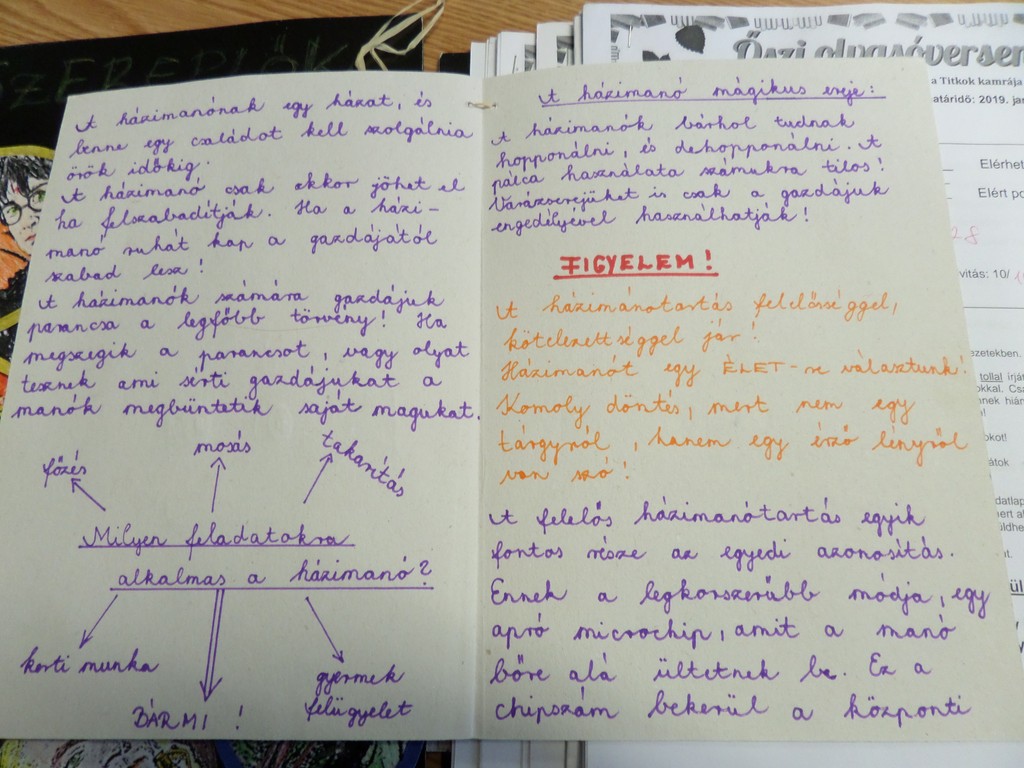 SZEREPLŐK
A házimanónak egy házat, és
benne egy családot kell szolgálnia
örök időkig.
A házimanó csak akkor jöhet el
ha felszabadítják. Ha a házi-
manó ruhát kap a gazdájától
szabad lesz!
A házimanók számára gazdájuk
parancsa a legfőbb törvény! Ha
megszegik a parancsot, vagy olyat
tesznek ami sérti gazdájukat a
manók megbüntetik saját magukat.
főzés
mosás
takarítás
Milyen feladatokra
alkalmas a házimanó?
kerti munka
BÁRMI!
gyermek
felügyelet
A házimanó mágikus ereje:
A házimanók bárhol tudnak
hopponálni, és dehopponálni. A
pálca használata számukra tilos!
Varázserejüket is csak a gazdájuk
engedélyével használhatják!
FIGYELEM!
A házimánotartás felelősséggel,
kötelezettséggel jár!
Házimanót egy ÉLET-re választunk!
Komoly döntés, mert nem egy
tárgyról, hanem egy érző lényről
van szó!
A felelős házimanótartás egyik
fontos része az egyedi azonosítás.
Ennek a legkorszerűbb módja, egy
apró microchip, amit a manó
bőre alá ültetnek be. Ez a
chipszám bekerül a központi
Őszi olvasóversen
a Titkok kamrája
atáridő: 2019. jan
Elérhet
Elért po
28
vitás: 10/
ezetekben.
tollal írját
okkal. Csa
nnek hián
okot!
átok
datlap
mert al
üldhe
ül